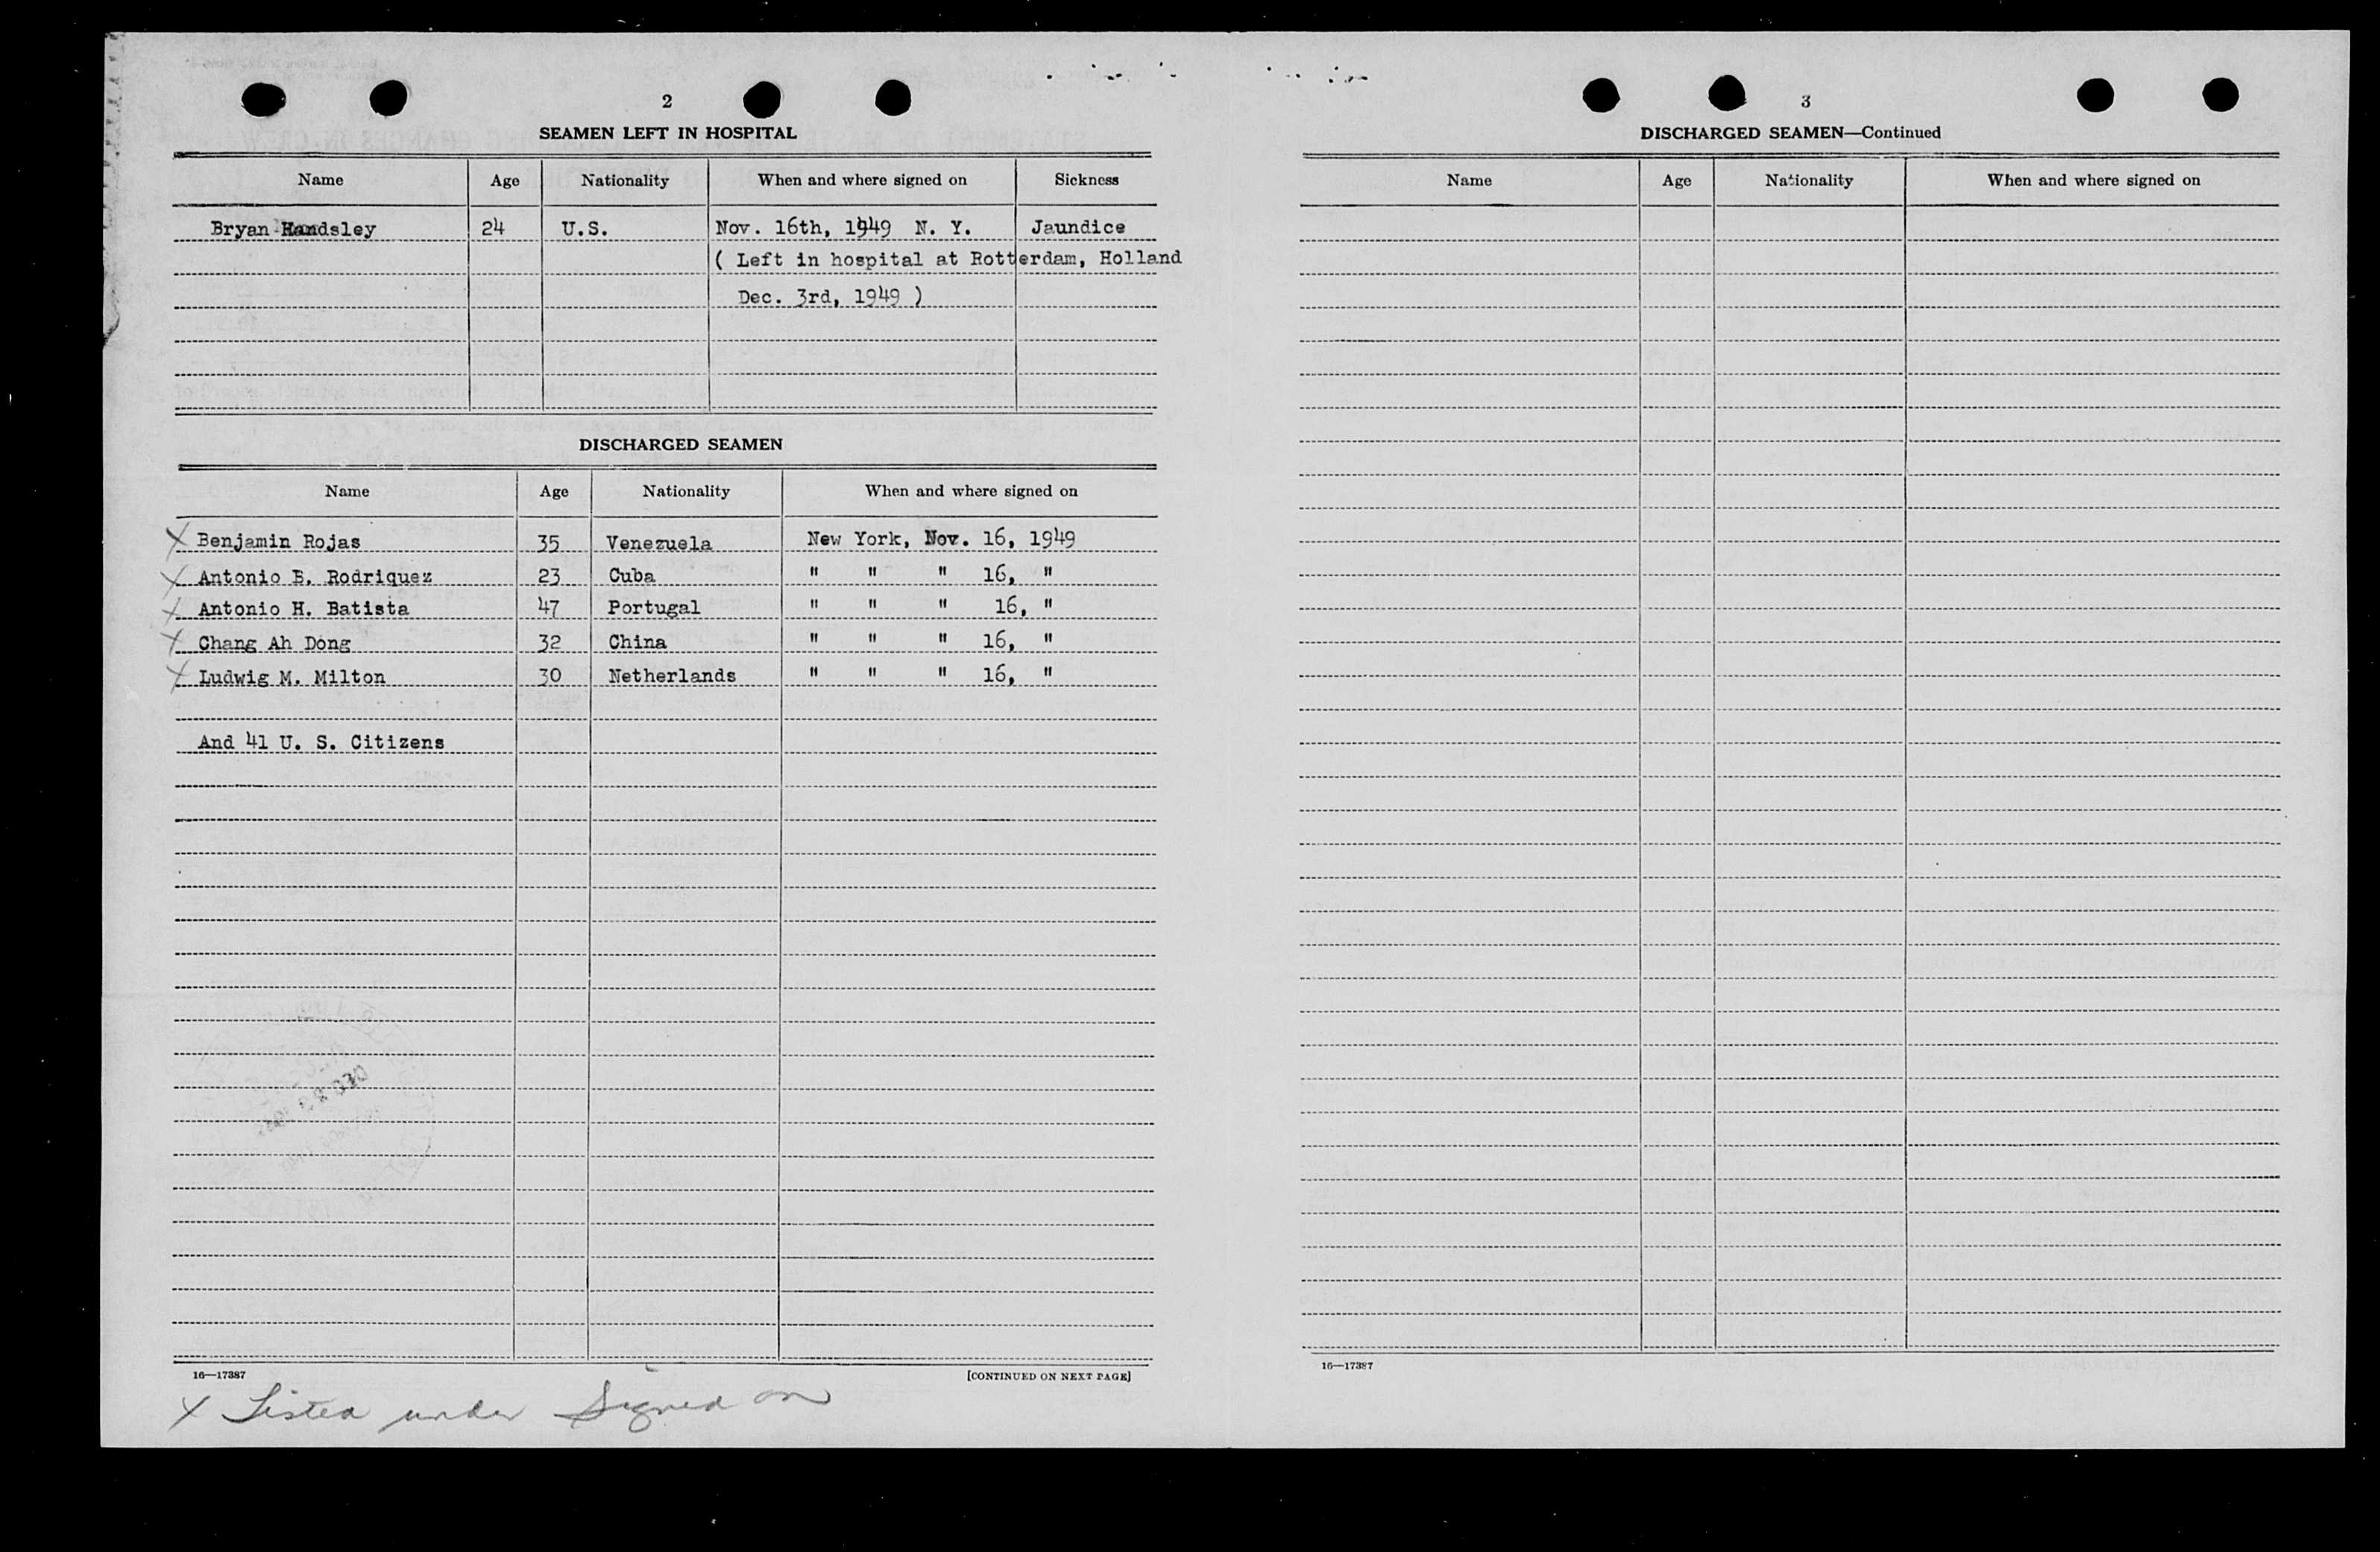 2
SEAMEN LEFT IN HOSPITAL
Name Age Nationality When and where signed on Sickness
Bryan Handsley 24 U.S. Nov. 16th, 1949 N. Y. Jaundice
( Left in hospital at Rotterdam, Holland
Dec. 3rd, 1949 )
DISCHARGED SEAMEN
Name Age Nationality When and where signed on
X Benjamin Rojas 35 Venezuela New York, Nov. 16, 1949
X Antonio B. Rodriquez 23 Cuba " " " 16, "
X Antonio H. Batista 47 Portugal " " " 16, "
X Chang Ah Dong 32 China " " " 16, "
X Ludwig M. Milton 30 Netherlands " " " 16, "
And 41 U. S. Citizens
16—17387 [CONTINUED ON NEXT PAGE]
X Listed under Signed on
3
DISCHARGED SEAMEN—Continued
Name Age Nationality When and where signed on
16—17387